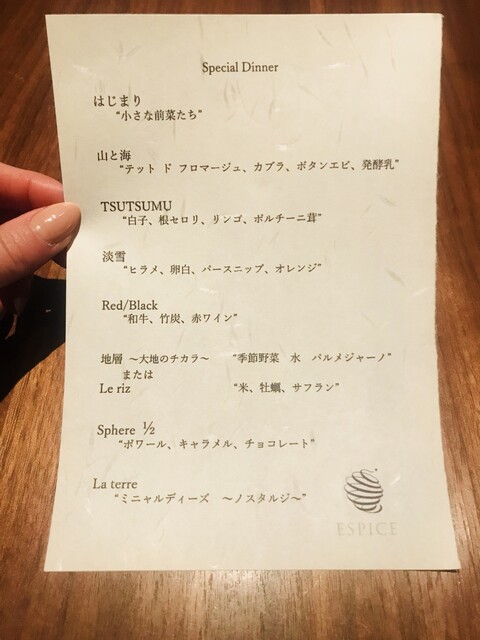 Special Dinner
はじまり
“小さな前菜たち”
山と海
“テット ド フロマージュ、カブラ、ボタンエビ、発酵乳”
TSUTSUMU
“白子、根セロリ、リンゴ、ポルチーニ茸”
淡雪
“ヒラメ、卵白、パースニップ、オレンジ”
Red/Black
“和牛、竹炭、赤ワイン”
地層 ～大地のチカラ～ “季節野菜 水 パルメジャーノ”
または
Le riz “米、牡蠣、サフラン”
Sphere ½
“ポワール、キャラメル、チョコレート”
La terre
“ミニャルディーズ ～ノスタルジ～”
ESPICE